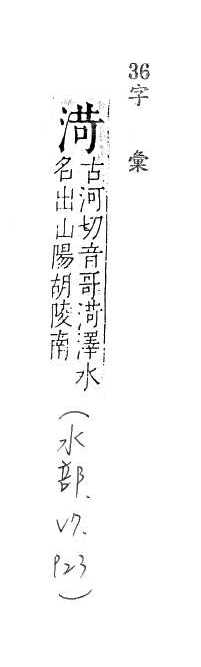 36字彙
渮
古河切音哥渮澤水
名出山陽胡陵南
（水部、V7. P23）